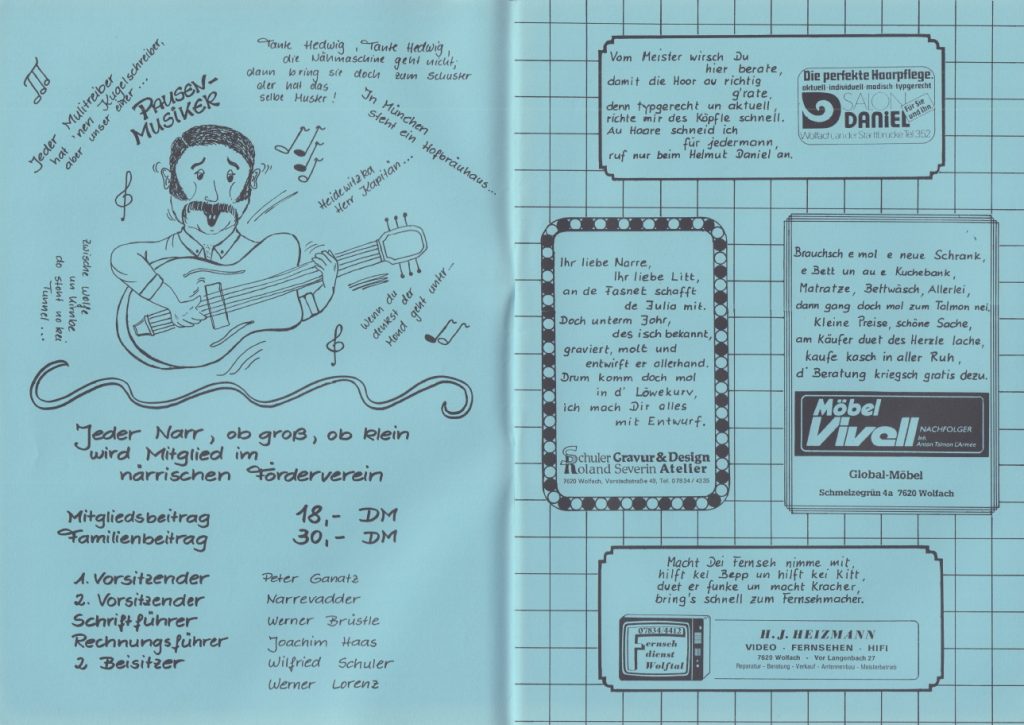 Jeder Mulitreiber
hat 'nen Kugelschreiber,
aber unser aber...
PAUSEN-
MUSIKER
Tante Hedwig, Tante Hedwig,
die Nähmaschine geht nicht;
dann bring sie doch zum Schuster
der hat das
selbe Muster!
In München
steht ein Hofbräuhaus...
Heidewitzka
Herr Kapitän...
Zwische Wolfe
un
do steht no kei
Tunnel...
Wenn du
denkst der
Mond geht unter...
Jeder Narr, ob groß, ob klein
wird Mitglied im
närrischen Förderverein
Mitgliedsbeitrag 18,- DM
Familienbeitrag 30,- DM
1. Vorsitzender Peter Ganatz
2. Vorsitzender Narrevadder
Schriftführer Werner Brüstle
Rechnungsführer Joachim Haas
2 Beisitzer Wilfried Schuler
Werner Lorenz
Vom Meister wirsch Du
hier berate,
damit die Hoor au richtig
g'rate,
denn typgerecht un aktuell,
richte mir des Köpfle schnell.
Au Haare schneid ich
für jedermann,
ruf nur beim Helmut Daniel an.
Die perfekte Haarpflege.
aktuell · individuell · modisch · typgerecht
SALON
DANIEL
Für Sie
und Ihn
Wolfach, an der Stadtbrücke Tel. 352
Ihr liebe Narre,
Ihr liebe Litt,
an de Fasnet schafft
de Julia mit.
Doch unterm Johr,
des isch bekannt,
graviert, molt und
entwirft er allerhand.
Drum komm doch mol
in d' Löwekurv,
ich mach Dir alles
mit Entwurf.
Schuler Gravur & Design
Roland Severin Atelier
7620 Wolfach, Vorstadtstraße 43, Tel. 07834/4335
Brauchsch e mol e neue Schrank,
e Bett un au e Kuchebank,
Matratze, Bettwäsch, Allerlei,
dann gang doch mol zum Tolmon nei.
Kleine Preise, schöne Sache,
am Käufer duet des Herzle lache,
kaufe kasch in aller Ruh,
d' Beratung kriegsch gratis dezu.
Möbel
Vivell NACHFOLGER
Inh.
Anton Tolmon L'Armee
Global-Möbel
Schmelzegrün 4a 7620 Wolfach
Macht Dei Fernseh nimme mit,
hilft kei Bepp un hilft kei Kitt,
duet er funke un macht Kracher,
bring's schnell zum Fernsehmacher.
07834-4412
Fernseh
dienst
Wolftal
H.J. HEIZMANN
VIDEO · FERNSEHEN · HIFI
7620 Wolfach · Vor Langenbach 27
Reparatur - Beratung - Verkauf - Antennenbau - Meisterbetrieb